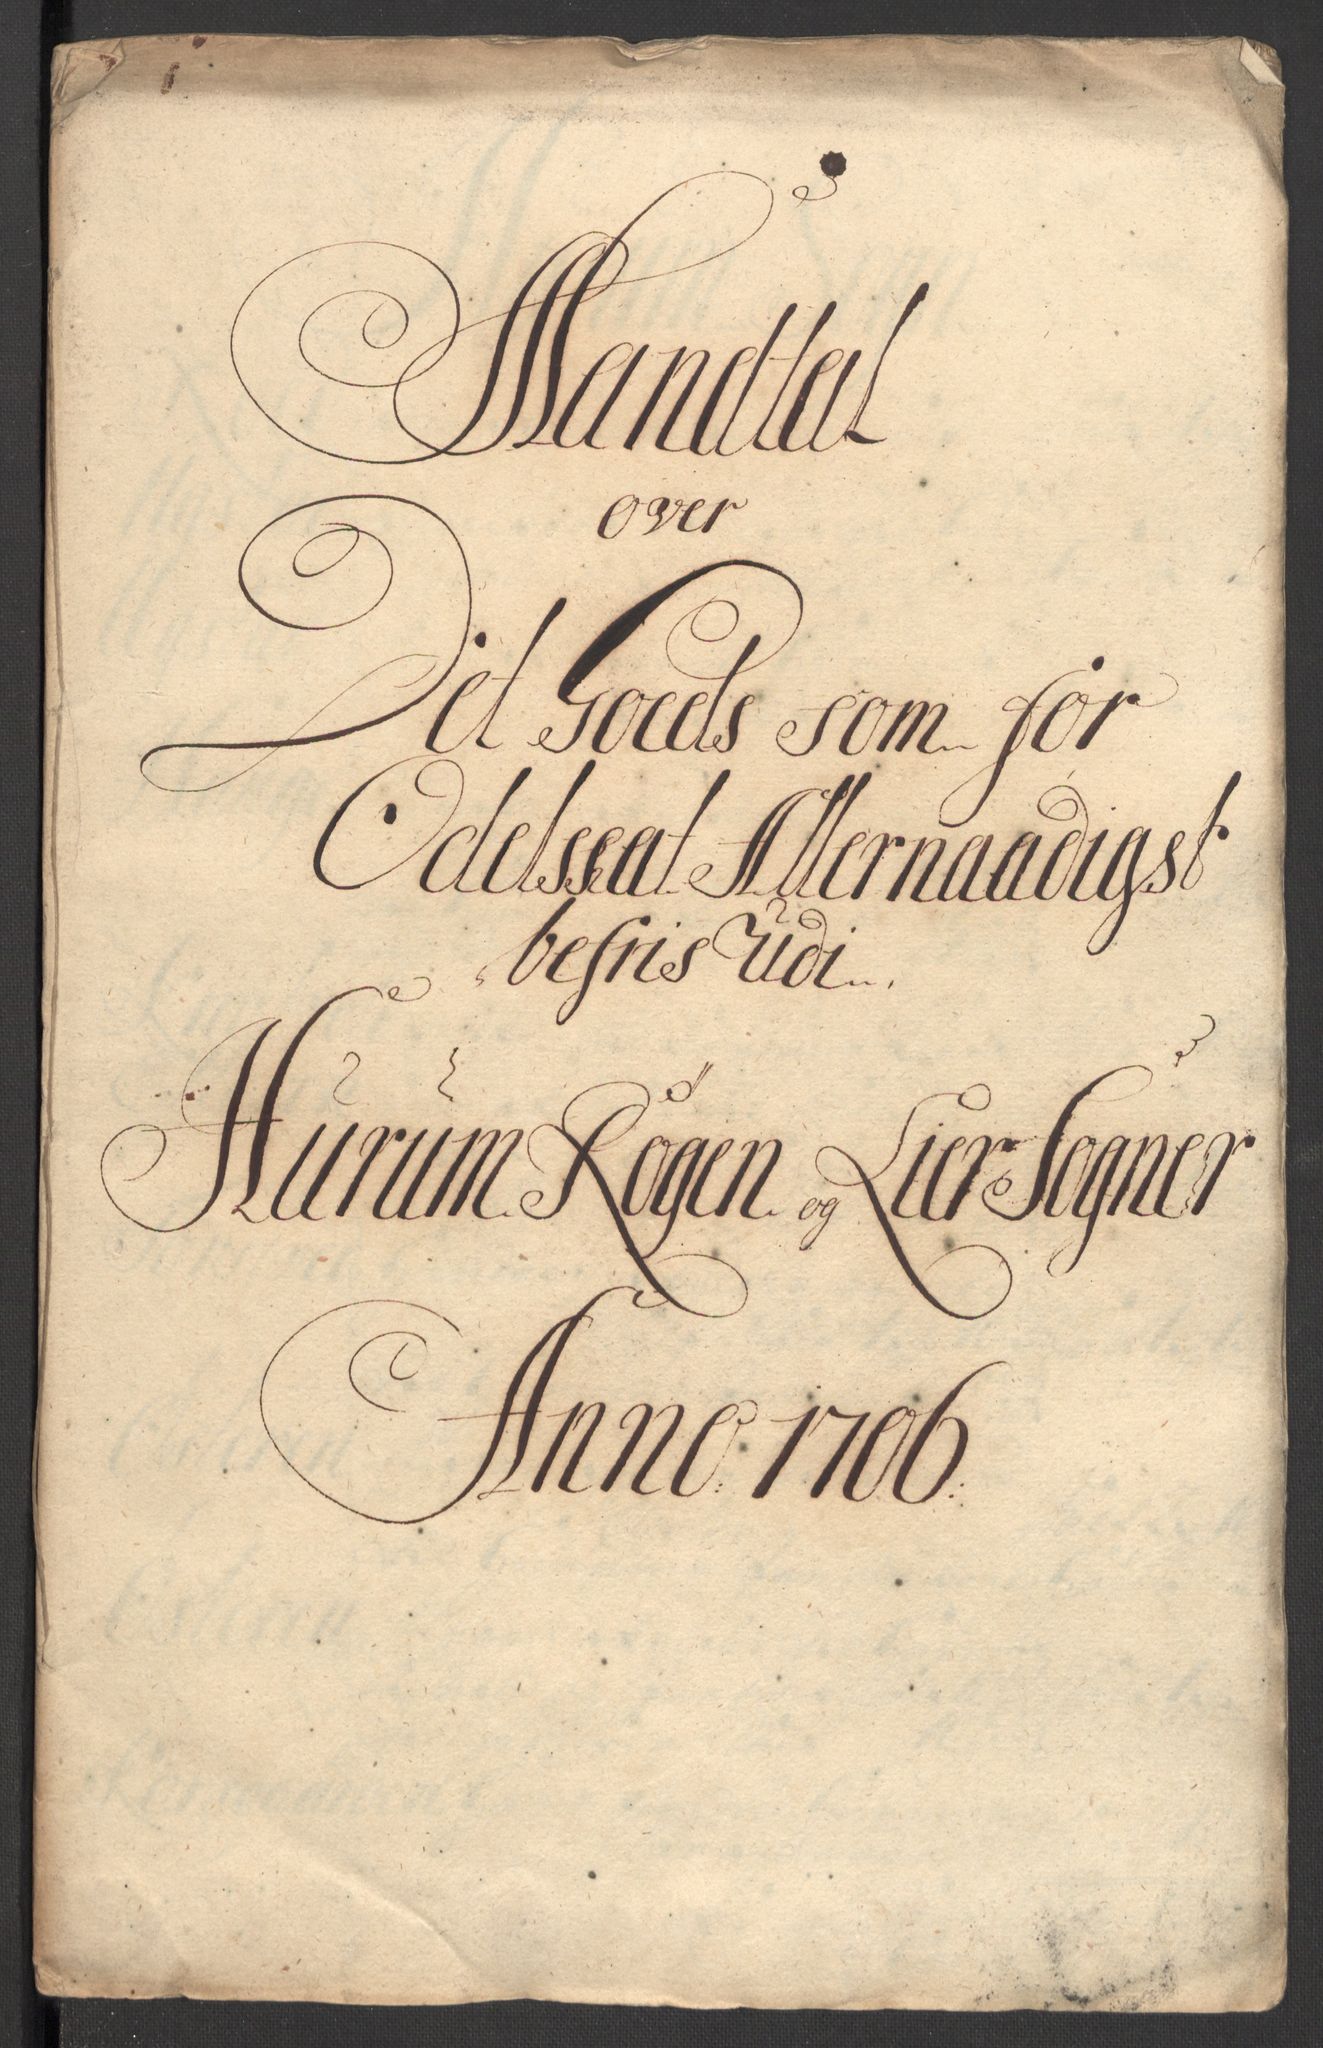 Mandtal
over
Det Goeds som for
Odelsseat Allernaadigst
befris Udi
Hurum Røgen og Lier Sogner
Anno: 1706: